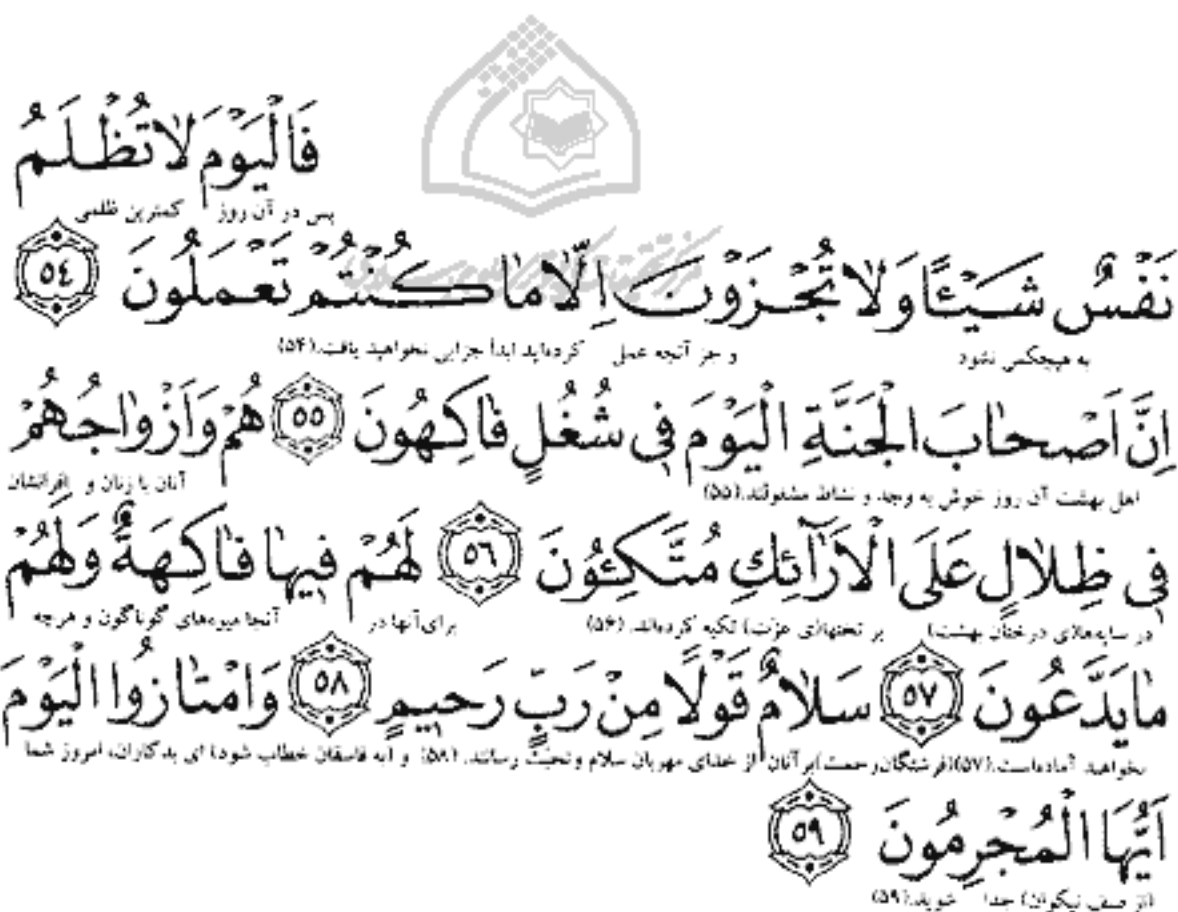 فَالْيَوْمَ لَا تُظْلَمُ
پس در آن روز کمترین ظلمی
نَفْسٌ شَيْئًا وَلَا تُجْزَوْنَ اِلَّا مَا كُنْتُمْ تَعْمَلُونَ ﴿٥٤﴾
به هیچکس نشود و جز آنچه عمل کرده‌اید ابدا جزایی نخواهید یافت.(۵۴)
اِنَّ اَصْحَابَ الْجَنَّةِ الْيَوْمَ فِى شُغُلٍ فَاكِهُونَ ﴿٥٥﴾ هُمْ وَاَزْوَاجُهُمْ
اهل بهشت آن روز خوش به وجد و نشاط مشغولند.(۵۵) آنان با زنان و اقرانشان
فِى ظِلَالٍ عَلَى الْاَرَآئِكِ مُتَّكِئُونَ ﴿٥٦﴾ لَهُمْ فِيهَا فَاكِهَةٌ وَلَهُمْ
در سایه‌های درختان بهشت) بر تختهای عزت) تکیه کرده‌اند. (۵۶) برای آنها در آنجا میوه‌های گوناگون و هرچه
مَا يَدَّعُونَ ﴿٥٧﴾ سَلَامٌ قَوْلًا مِنْ رَبٍّ رَحِيمٍ ﴿٥٨﴾ وَامْتَازُوا الْيَوْمَ
بخواهند آماده‌است.(۵۷)(فرشتگان رحمت) بر آنان از خدای مهربان سلام و تحیت رسانند. (۵۸) و (به فاسقان خطاب شود) ای بدکاران، امروز شما
اَيُّهَا الْمُجْرِمُونَ ﴿٥٩﴾
(از صف نیکوان) جدا شوید.(۵۹)